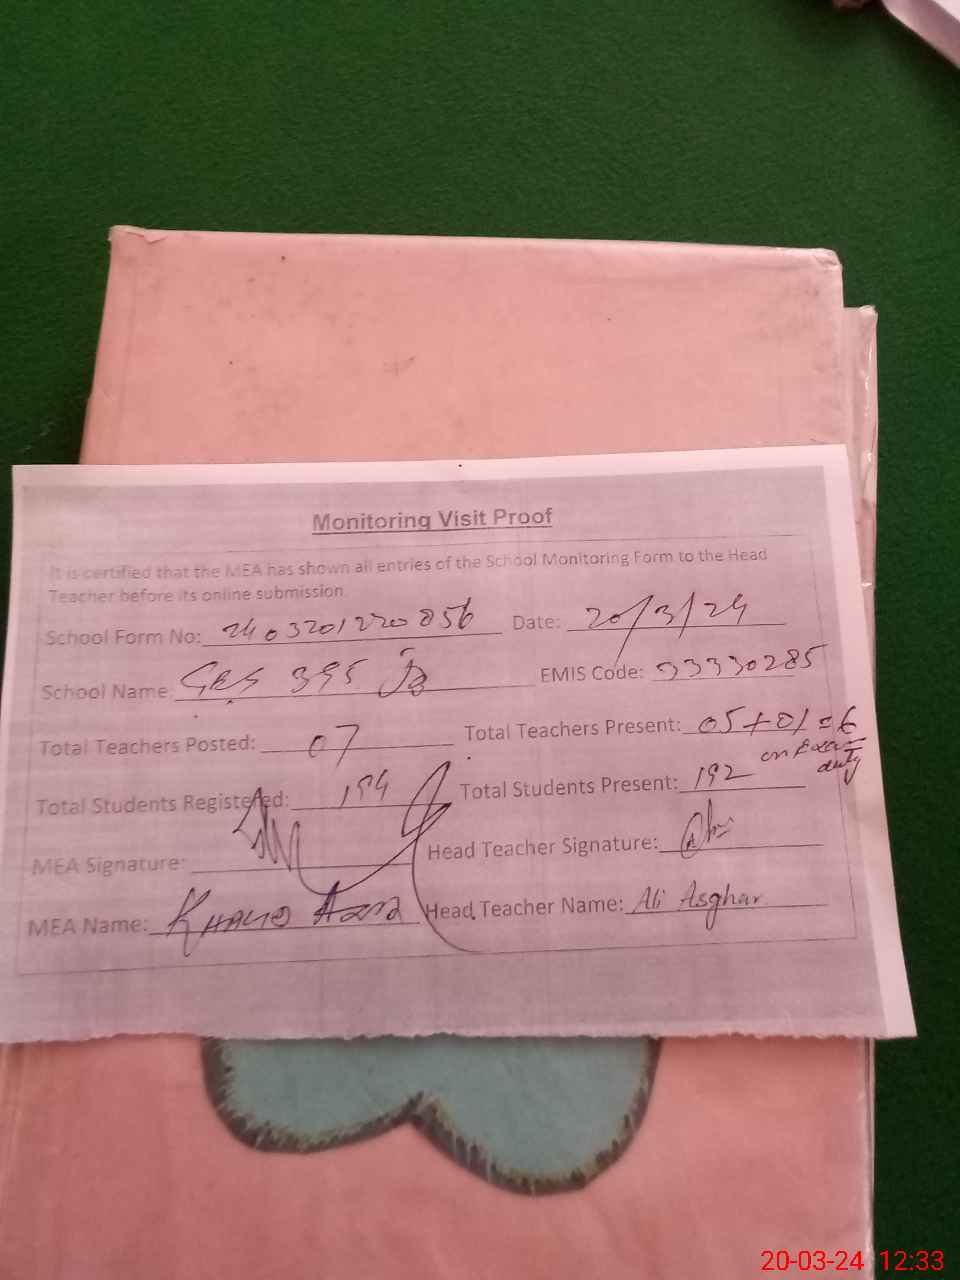 Monitoring Visit Proof
It is certified that the MEA has shown all entries of the School Monitoring Form to the Head
Teacher before its online submission.
School Form No: 2403201220856 Date: 20/3/24
School Name: 395 JB EMIS Code: 33330285
Total Teachers Posted: 07 Total Teachers Present: 05+01=6
on Exam
duty
Total Students Registered: 194 Total Students Present: 192
MEA Signature: Head Teacher Signature:
MEA Name: KHALID Head Teacher Name: Ali Asghar
20-03-24 12:33